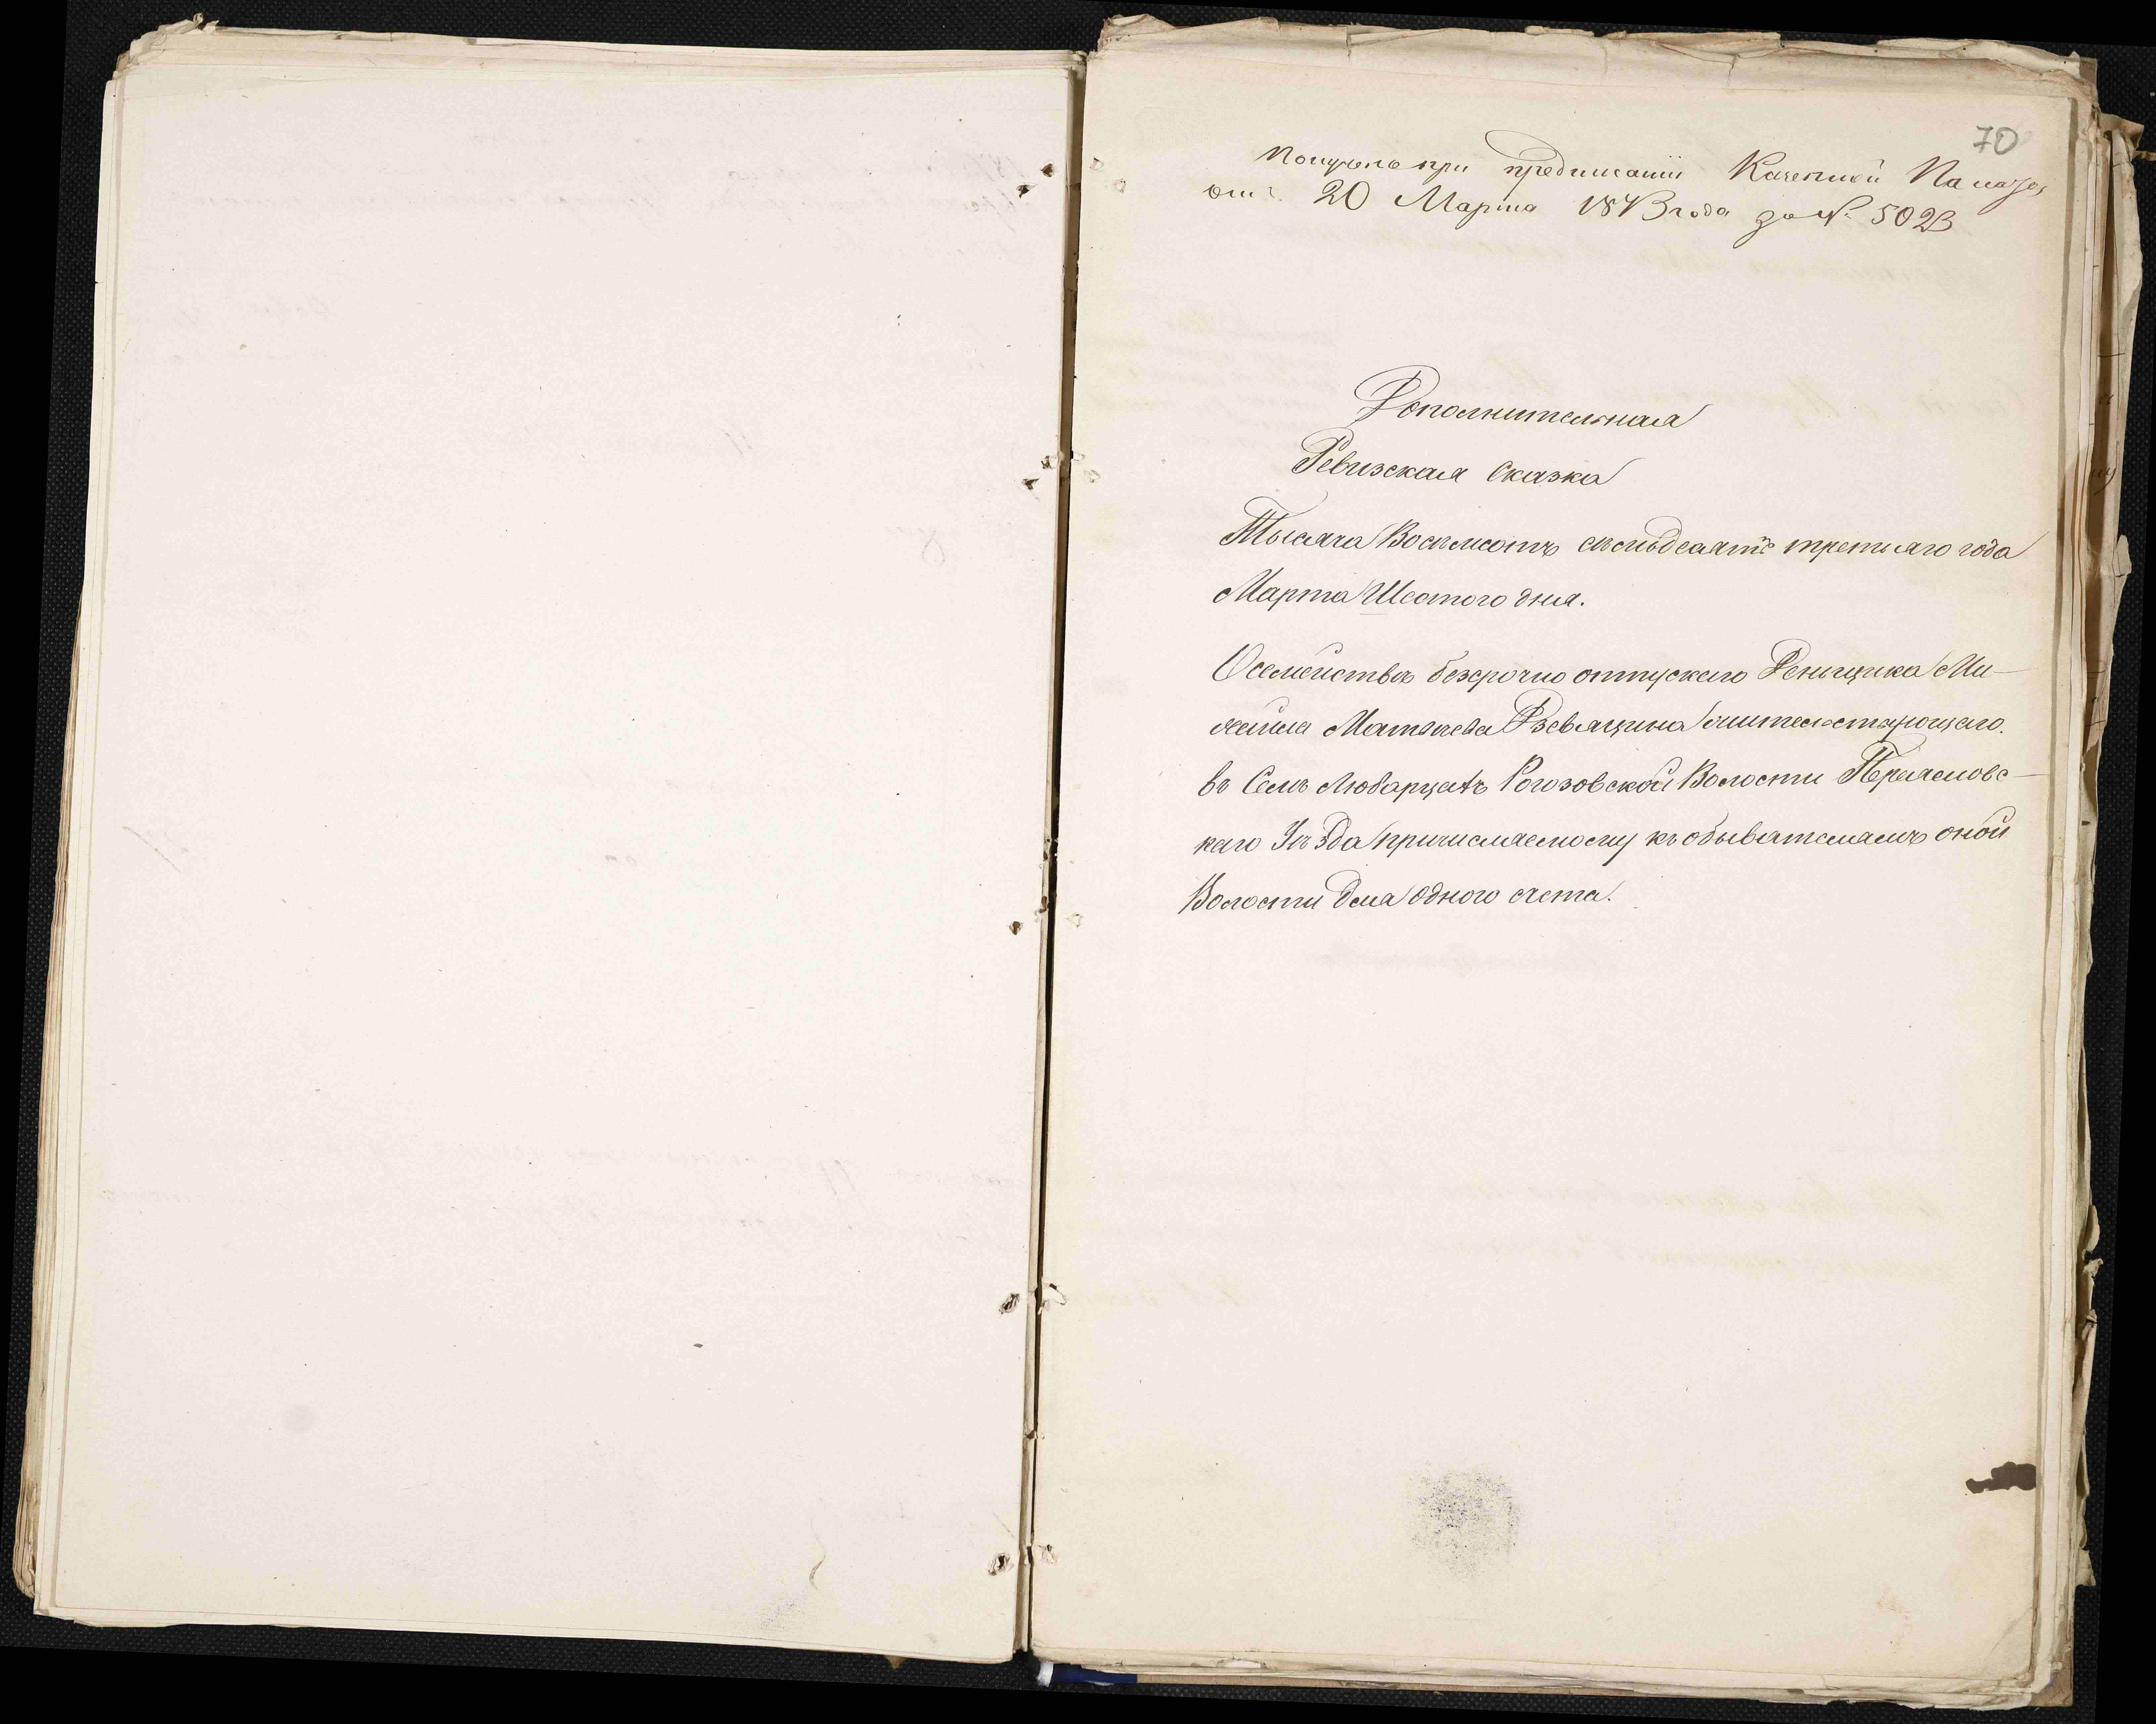 70
Получено при предписании Казенной Палаты
отъ 20 Марта 1873 года за № 5023
Дополнительная
Ревизская Сказка
Тысяча Восемсотъ семьдесятъ третьяго года
Марта Шестого дня.
О семействѣ безсрочно отпускаго Деньщика Ми-
хаила Матвѣева жительствующаго
въ Селѣ Любарцахъ Рогозовской Волости Переяславс-
каго Уѣзда причисляемому къ обывателямъ оной
Волости для одного счета.